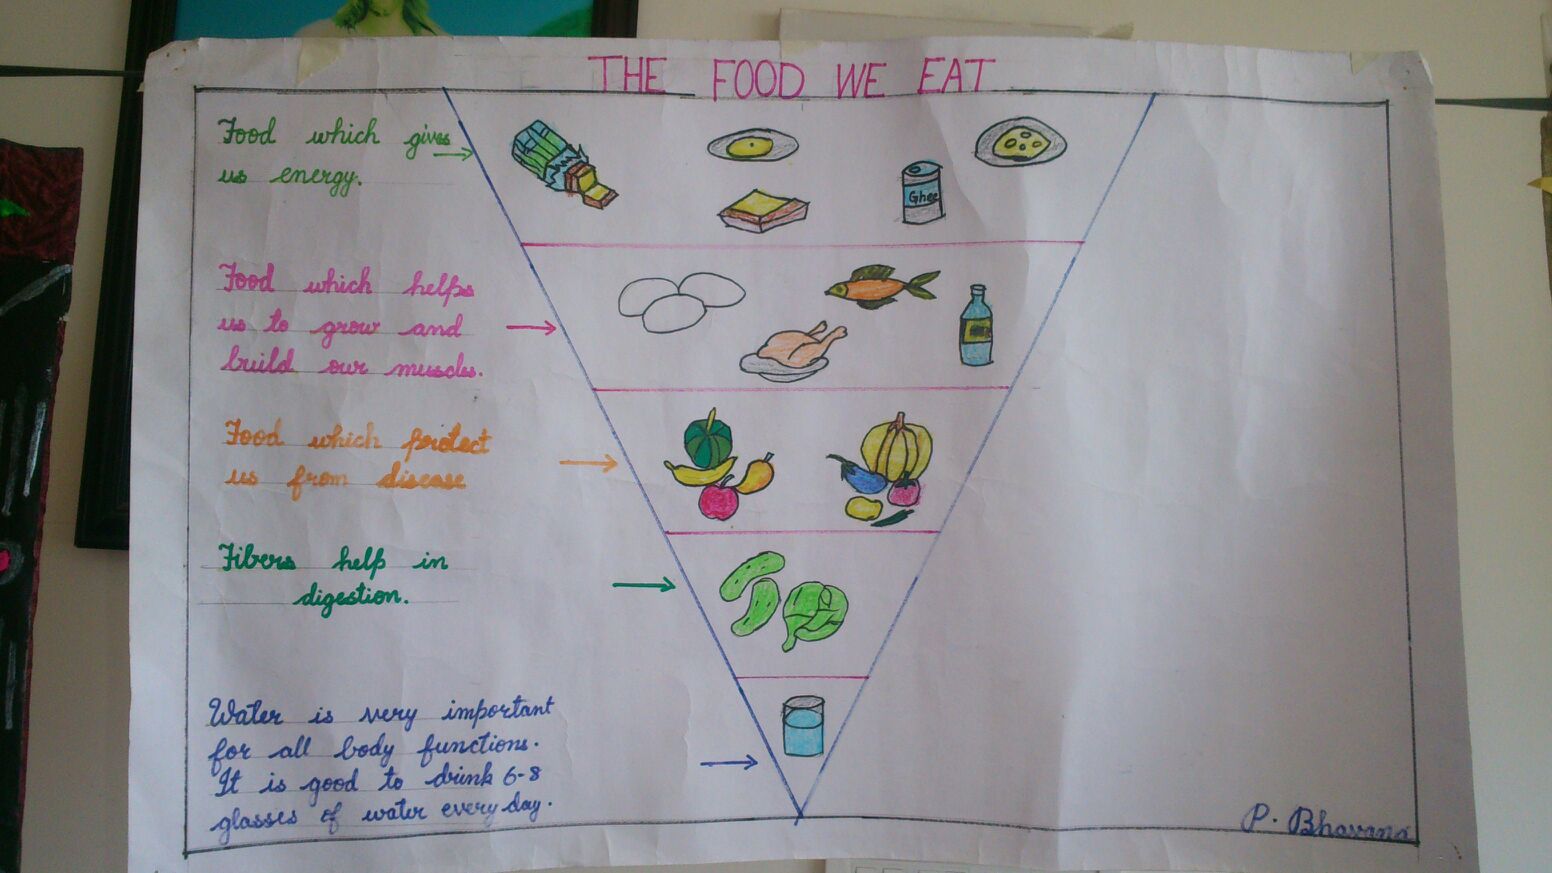 THE FOOD WE EAT
Food which gives
us energy.
Ghee
Food which helps
us to grow and
build our muscles.
Food which protect
us from disease
Fibers help in
digestion.
Water is very important
for all body functions.
It is good to drink 6-8
glasses of water every day.
P. Bhavana